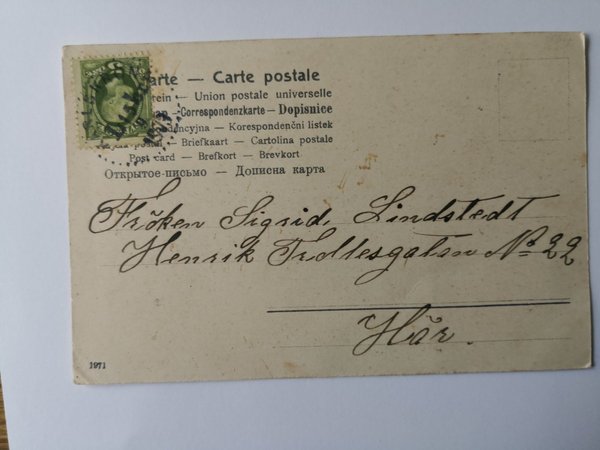 arte — Carte postale
rein — Union postale universelle
Correspondenzkarte — Dopisnice
encyjna — Korespondenční listek
Briefkaart — Cartolina postale
Post card — Brefkort — Brevkort
Открытое-письмо — Дописна карта
Fröken Sigrid Lindstedt
Henrik No 22
Här.
1971